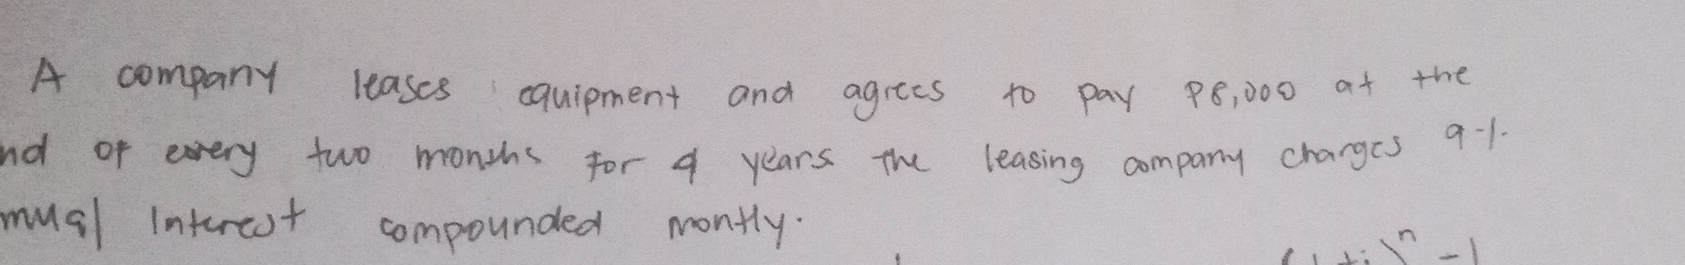 A company leases equipment and agrees to pay ₱8,000 at the
nd of every two months for 4 years the leasing company charges 9%
nual Interest compounded montly.
(1+i)ⁿ-1